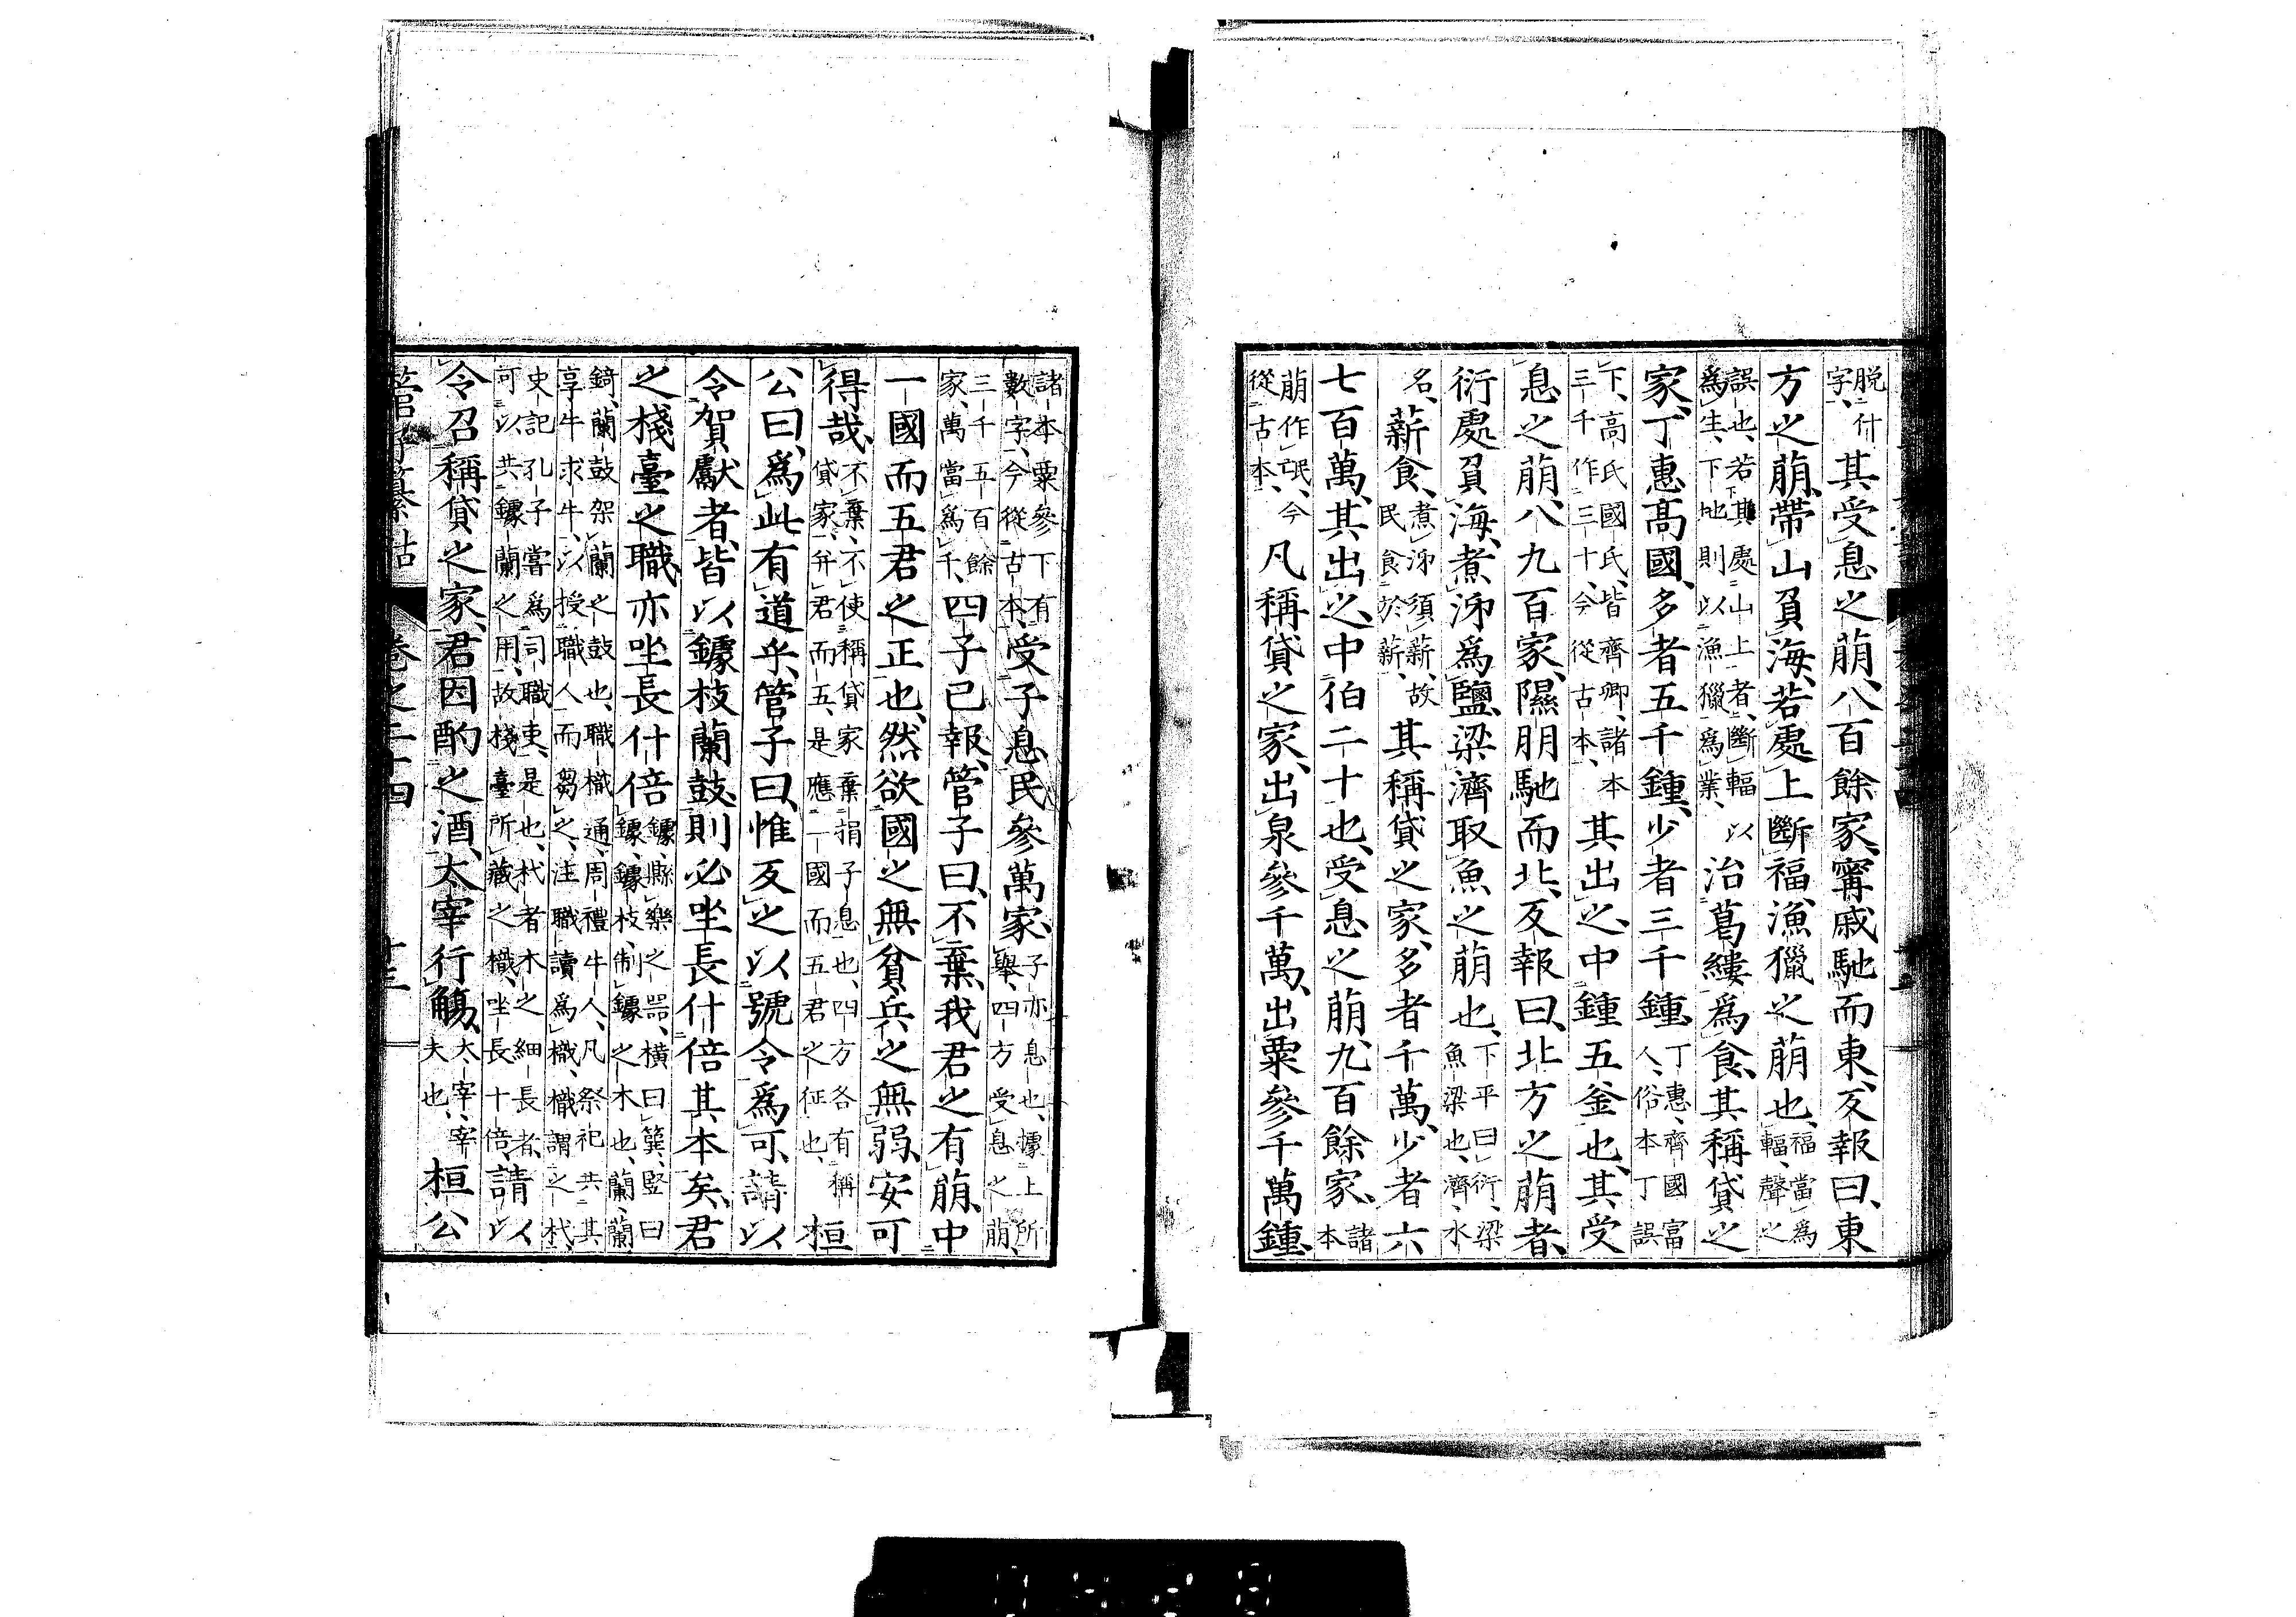 脱什字、其受息之萠、八百餘家、甯戚馳而東、反報曰、東
方之萠、帶山負海、若處上斷福、漁獵之萠也、福當爲輻、聲之
誤也、若其處山上者、斷輻以爲生、下地則以漁獵爲業、治葛縷爲食、其稱貸之
家、丁惠高國、多者五千鍾、少者三千鍾、丁惠、齊國富人、俗本丁誤
下、高氏國氏、皆齊卿、諸本三千作三十、今從古本、其出之、中鍾五釜也、其受
息之萠、八九百家、隰朋馳而北、反報曰、北方之萠者、
衍處負海、煮沛爲鹽、梁濟取魚之萠也、下平曰衍、梁魚梁也、濟、水
名、薪食、煮沛須薪、故民食於薪、其稱貸之家、多者千萬、少者六
七百萬、其出之、中伯二十也、受息之萠、九百餘家、諸本
萠作氓、今從古本、凡稱貸之家、出泉參千萬、出粟參千萬鍾、
諸本粟參下有數字、今從古本、受子息民參萬家、子亦息也、據上所擧、四方受息之萠、
三千五百餘家、萬當爲千、四子已報、管子曰、不棄我君之有萠、中
一國而五君之正也、然欲國之無貧、兵之無弱、安可
得哉、不棄、不使稱貸家棄捐子息也、四方各有稱貸家、并君而五、是應一國而五君之征也、桓
公曰、爲此有道乎、管子曰、惟反之以號令爲可、請以
令賀獻者、皆以鐻枝蘭鼓、則必坐長什倍其本矣、君
之棧臺之職、亦坐長什倍、鐻、縣樂之器、横曰簨、竪曰鐻、鐻枝、制鐻之木也、蘭、蘭
錡、蘭鼓架、蘭之鼓也、職樴通、周禮牛人、凡祭祀共其享牛求牛、以授職人而芻之、注職讀爲樴、樴謂之杙、
史記孔子嘗爲司職吏、是也、杙者木之細長者、可以共鐻蘭之用、故棧臺所藏之樴、坐長十倍、請以
令召稱貸之家、君因酌之酒、太宰行觴、太宰、宰夫也、桓公
管子纂詁 卷之二十四 十三